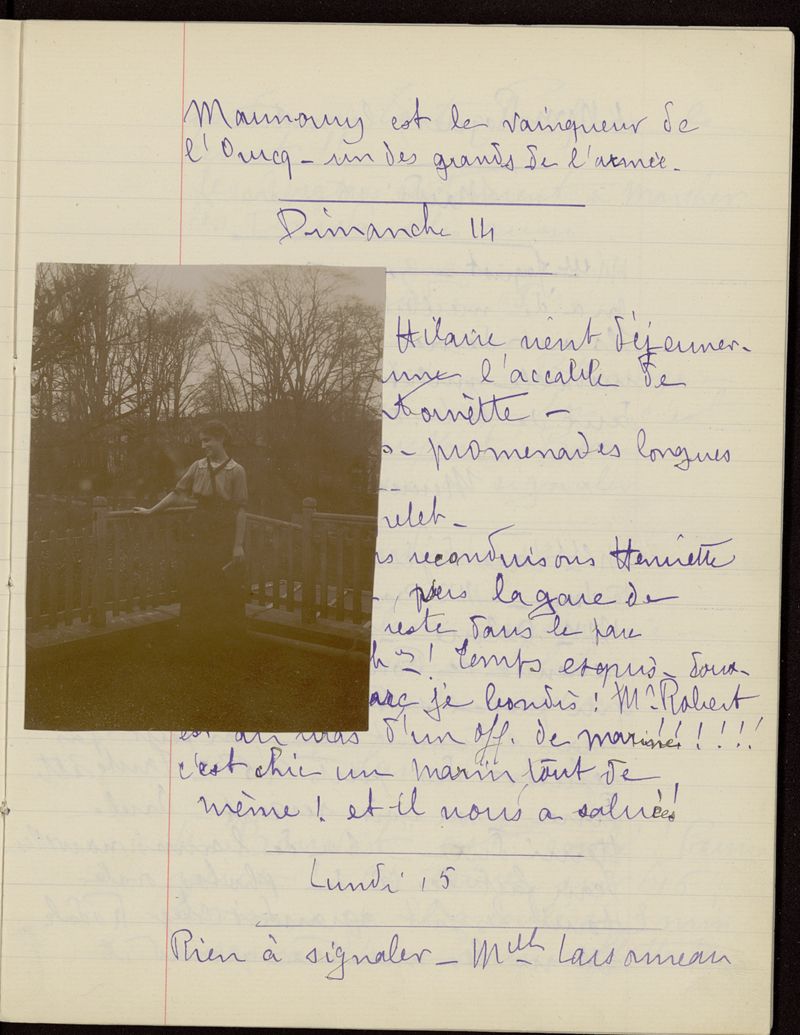 Maunoury est le vainqueur de
l'Ourcq – un des grands de l'armée.
Dimanche 14
Hilaire vient déjeuner.
l'accable de
– promenades longues
relet –
reconduisons Henriette
vers la gare de
reste dans le parc
! Temps exquis – doux –
je bondis ! Mr Robert
est au bras d'un off. de marine ! ! ! ! !
c'est chic un marin, tout de
même ! et il nous a saluées !
Lundi 15
Rien à signaler – Melle